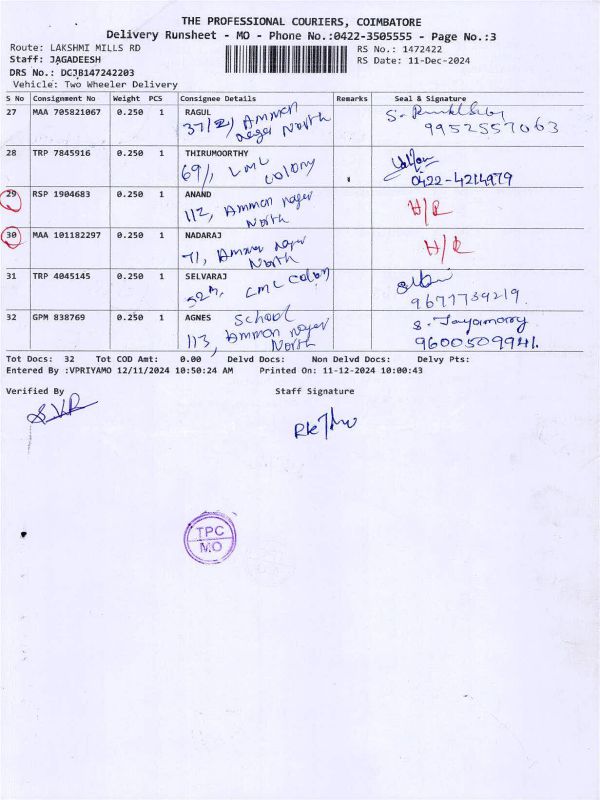 THE PROFESSIONAL COURIERS, COIMBATORE
Delivery Runsheet - MO - Phone No.:0422-3505555 - Page No.:3
Route: LAKSHMI MILLS RD
RS No.: 1472422
Staff: JAGADEESH
RS Date: 11-Dec-2024
DRS No.: DCJB147242203
Vehicle: Two Wheeler Delivery
S No Consignment No Weight PCS Consignee Details Remarks Seal & Signature
27 MAA 705821067 0.250 1 RAGUL
37/2, Ammon
nager North
9952557063
28 TRP 7845916 0.250 1 THIRUMOORTHY
69/, LML
colony
0422-4214979
29 RSP 1904683 0.250 1 ANAND
112, Ammon nager
North
H/R
30 MAA 101182297 0.250 1 NADARAJ
71, Ammon nager
North
H/R
31 TRP 4045145 0.250 1 SELVARAJ
52A, LML colony
9677739219.
32 GPM 838769 0.250 1 AGNES School
113, Ammon nager
North
9600509941.
Tot Docs: 32 Tot COD Amt: 0.00 Delvd Docs: Non Delvd Docs: Delvy Pts:
Entered By :VPRIYAMO 12/11/2024 10:50:24 AM Printed On: 11-12-2024 10:00:43
Verified By Staff Signature
TPC
MO